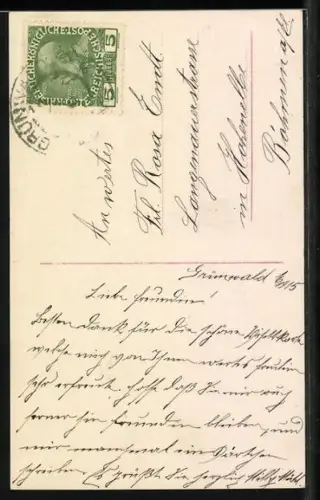 KAISERLICHE KÖNIGLICHE ÖSTERR. POST
5 HELLER 5
GRÜNWALD
An wertes
Frl. Rosa Emilt
Langenauerstrasse
in Hohenelbe
Böhmen a/E
Grünwald 15
Liebe Freundin!
Besten Dank für die schöne Ansichtskarte
welche mich von Ihnen wertes Fräulein
sehr erfreut. Hoffe daß Sie mir auch
ferner hin Freundin bleiben, und
mir manchmal ein Kärtchen
schreiben. Es grüßt Sie herzlich Willy